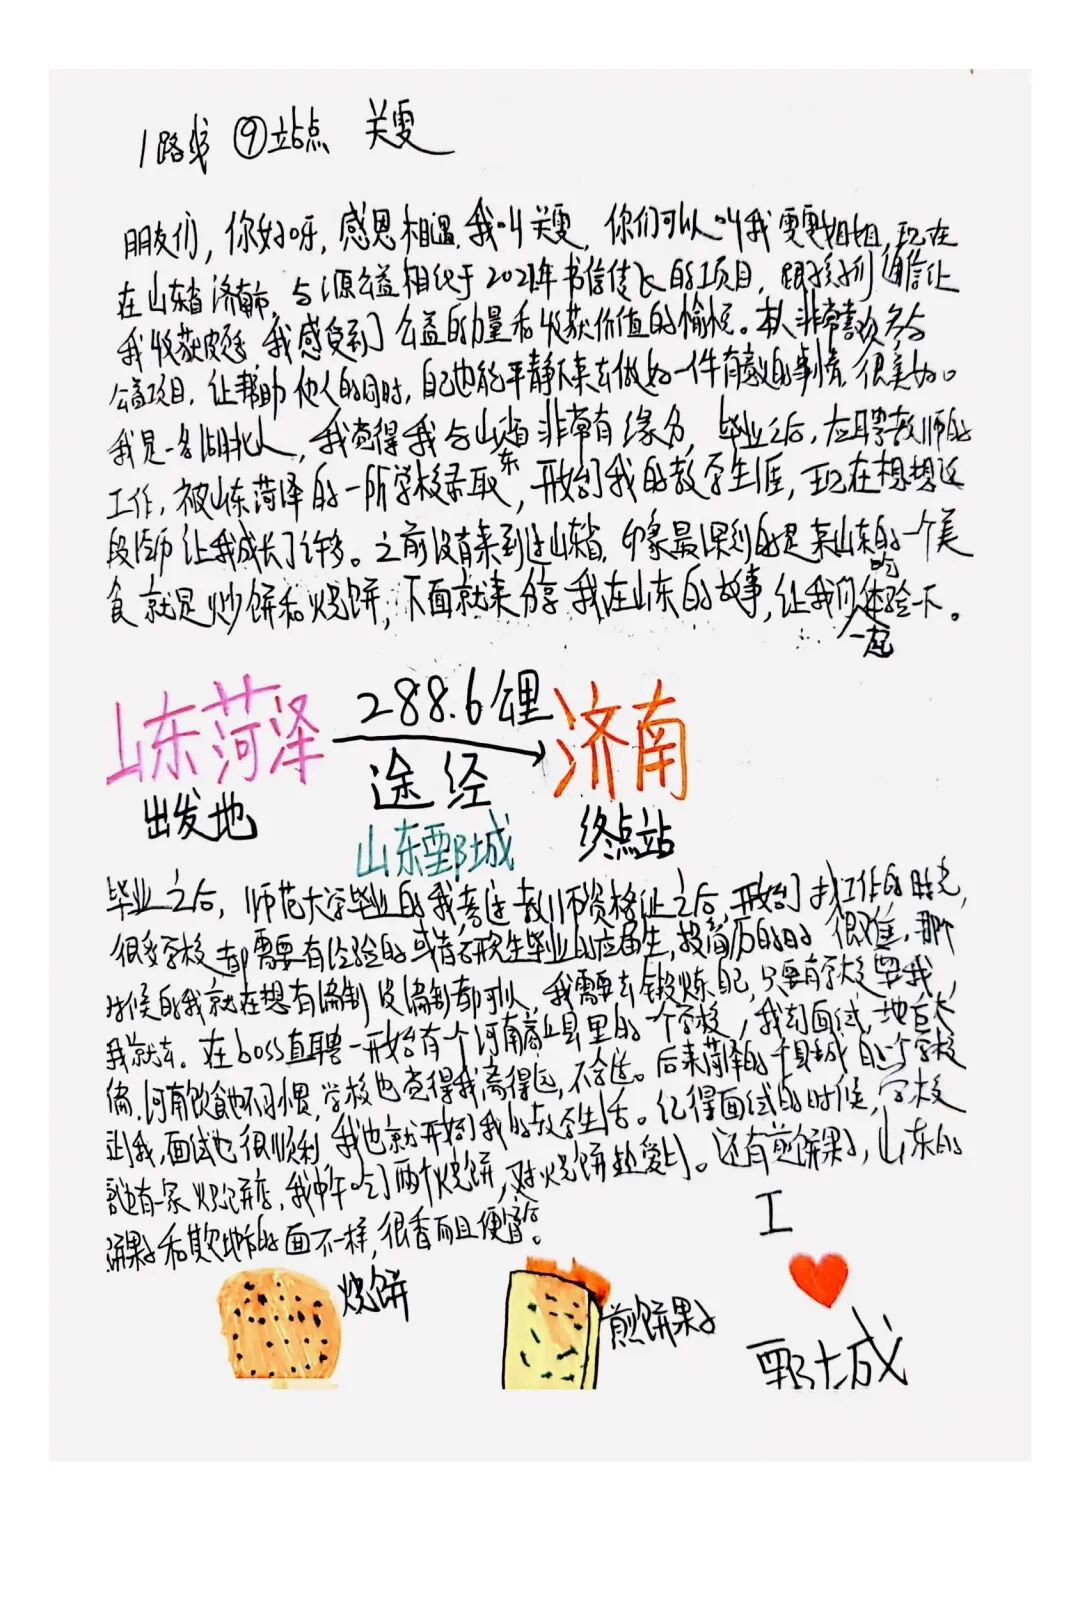 1路线 ⑨站点 关雯
朋友们，你好呀，感恩相遇，我叫关雯，你们可以叫我雯雯姐姐，现在
在山东省济南市，与i源公益相伴于2021年书信传长的项目，跟孩子们通信让
我收获颇多，我感受到了公益的力量和收获价值的愉悦。本人非常喜欢参与
公益项目，让帮助他人的同时，自己也能平静下来去做好一件有意义的事情，很美好。
我是一名湖北人，我觉得我与山东省非常有缘分，毕业之后，应聘教师的
工作，被山东菏泽的一所学校录取，开始了我的教学生涯，现在想想这
段经历让我成长了许多。之前没有来到过山东省，印象最深刻的是来山东的一个美
食就是炒饼和烧饼，下面就来分享我在山东的故事，让我们一起体验一下。
山东菏泽 288.6公里 济南
出发地 途经 终点站
山东鄄城
毕业之后，师范大学毕业的我考这教师资格证之后，开始了找工作的时光，
很多学校都需要有经验的或者研究生毕业的应届生，投简历的时 很难，那个
时候的我就在想有编制没编制都可以，我需要去锻炼自己，只要有学校要我，
我就去。在boss直聘一开始有个河南商丘县里的一个学校，我去面试，地巨大
偏，河南饮食也不习惯，学校也觉得我离得远，不合适。后来菏泽的一个县城的一个学校
到我，面试也很顺利，我也就开始了我的教学生活。记得面试的时候，学校
也有一家烧饼店，我中午吃了两个烧饼，对烧饼热爱了。还有煎饼果子，山东的
饼果子和其他地方的面不一样，很香而且便宜。
工
烧饼 煎饼果子
鄄城